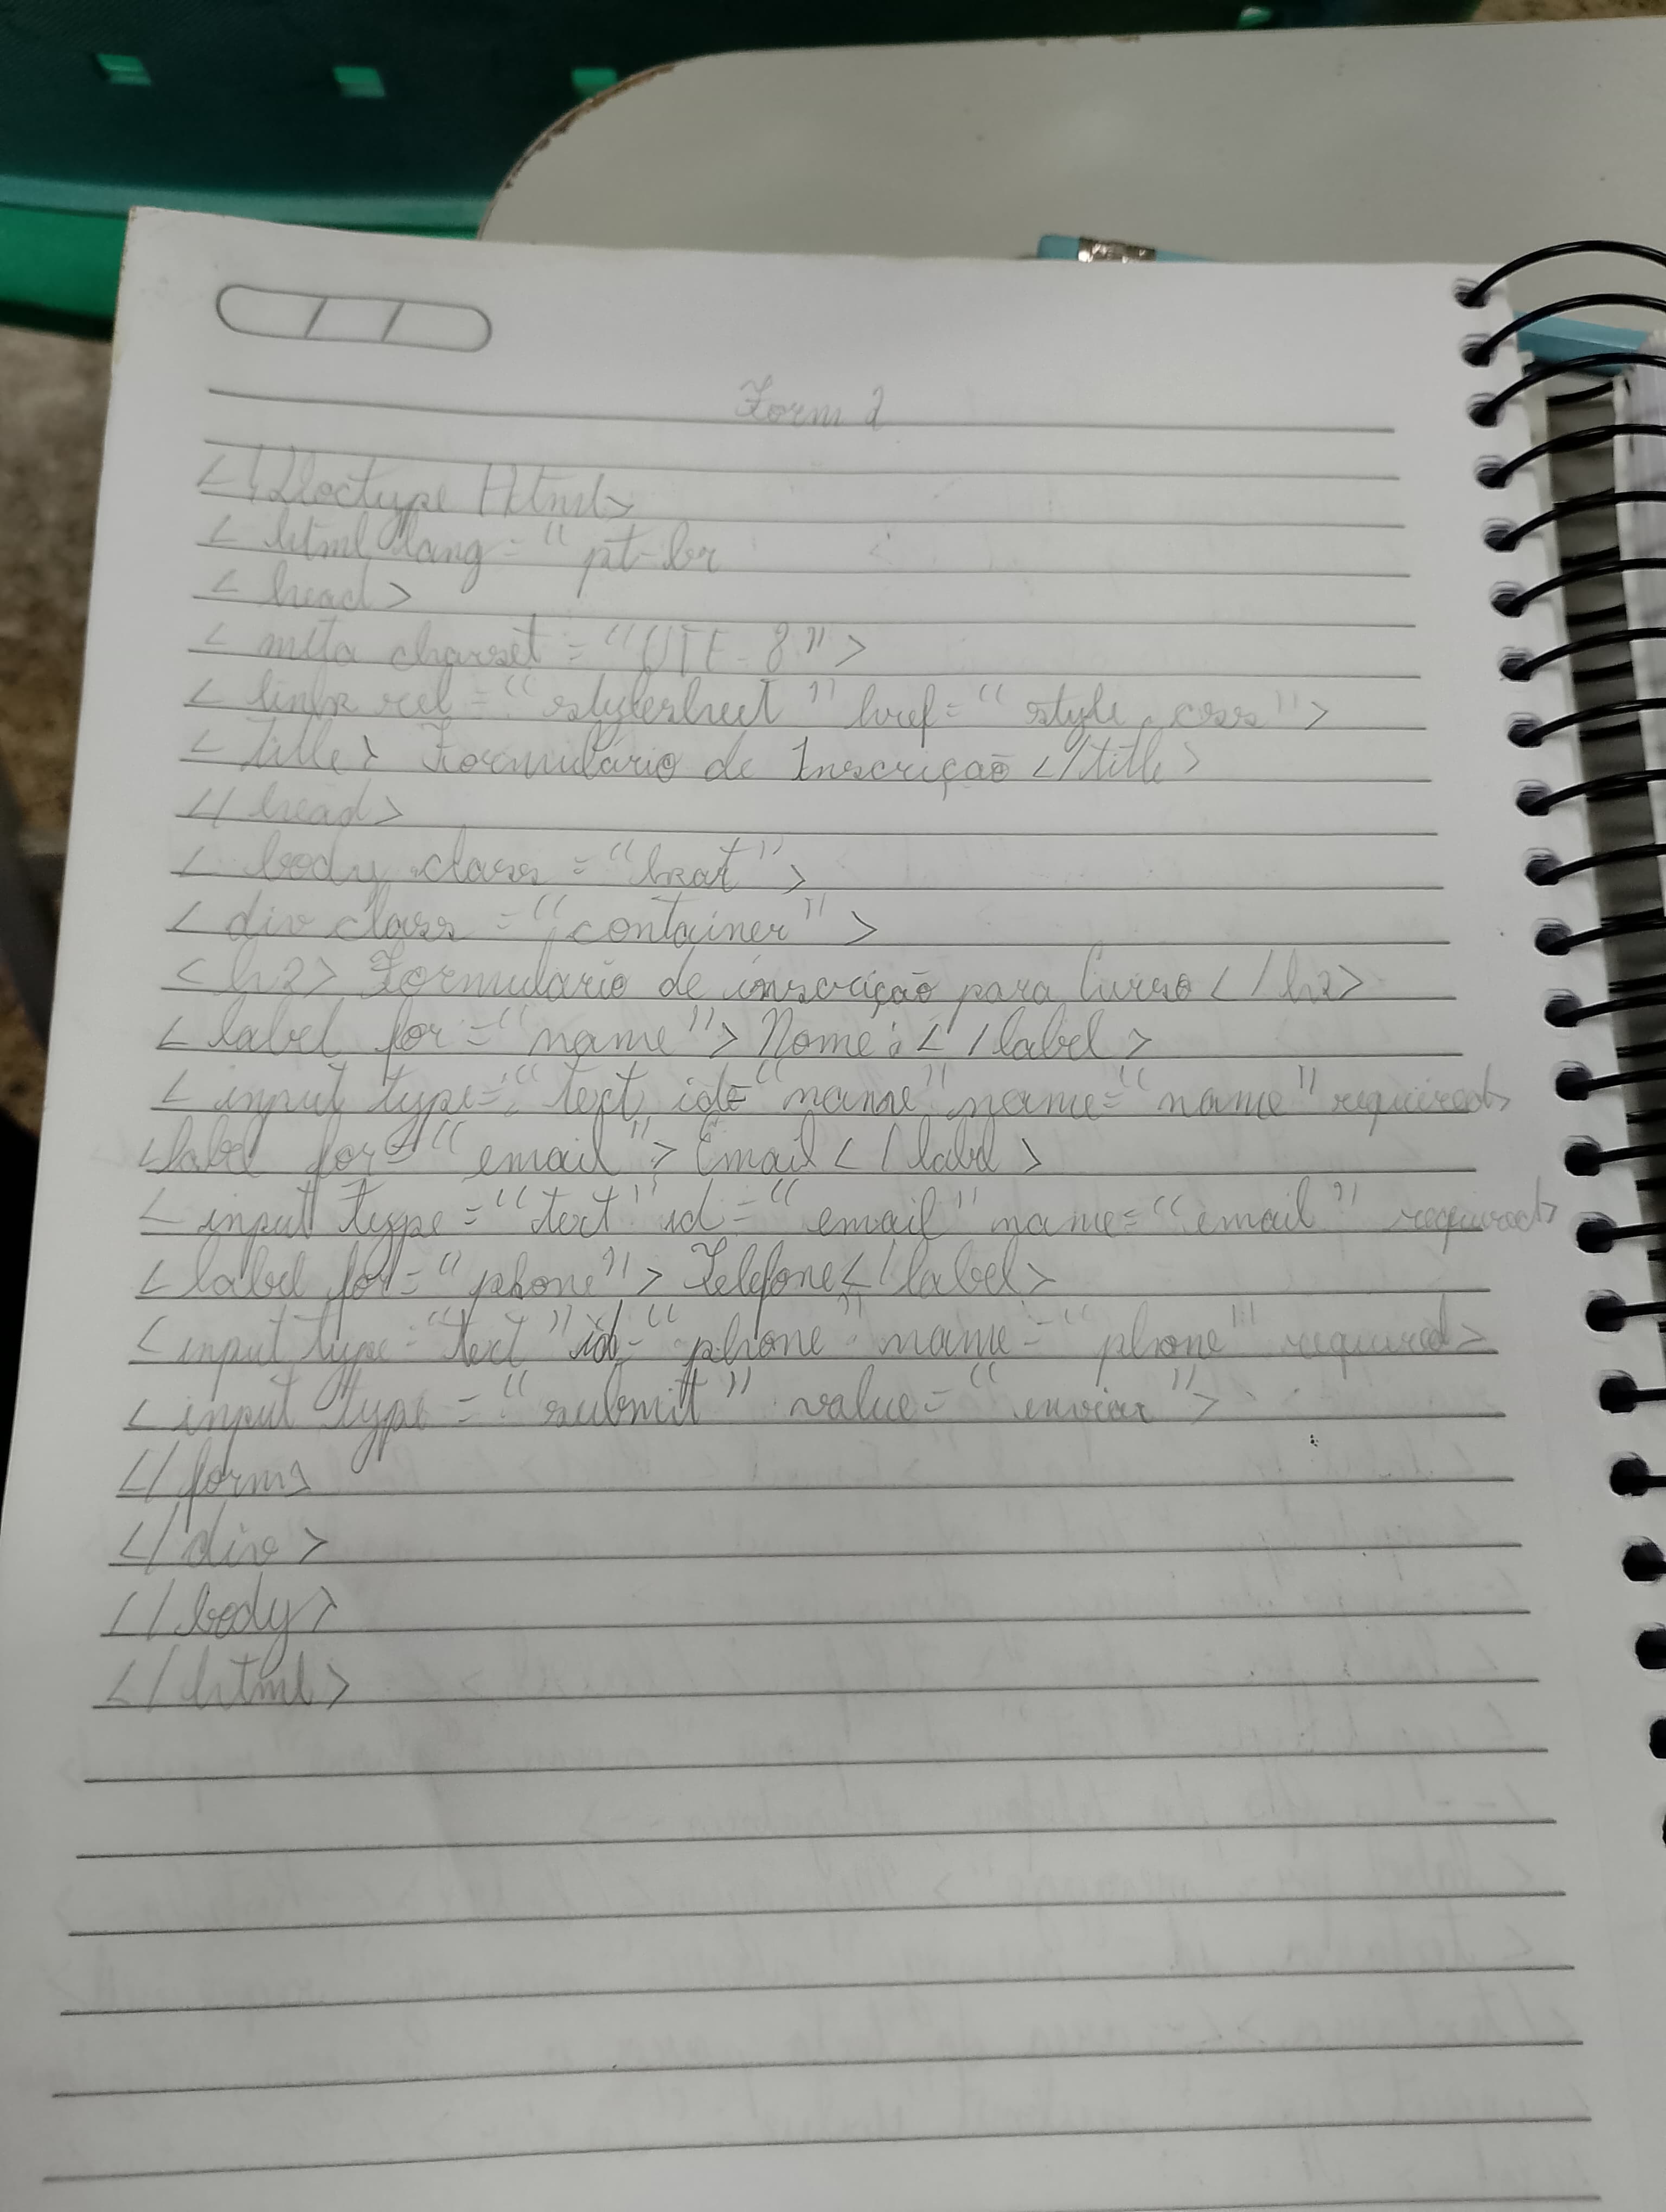 Form 2
<!Doctype Html>
< html lang = "pt-br
< head >
< meta charset = "UTF-8" >
< link rel = "stylesheet" href = "style.css" >
< title > Formulário de Inscrição </title >
</ head >
< body class = "bxat" >
< div class = "container" >
< h2 > Formulario de inscrição para Curso < / h2 >
< label for = "name" > Nome : < / label >
< input type = "text id = "name" name = "name" required >
< label for = "email" > Email < / label >
< input type = "text" id = "email" name = "email" required >
< label for = "phone" > Telefone < / label >
< input type = "text" id = "phone" name = "phone" required >
< input type = "submit" value = "enviar" >
</ form >
</ div >
</ body >
</ html >